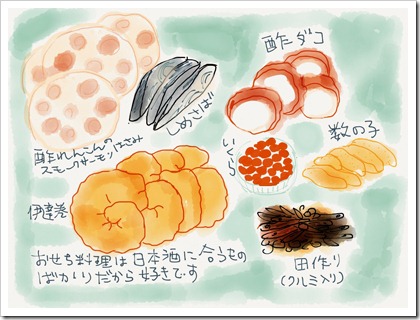 酢ダコ
しめさば
酢れんこんの
スモークサーモンはさみ
いくら
数の子
伊達巻
田作り
(クルミ入り)
おせち料理は日本酒に合うもの
ばかりだから好きです